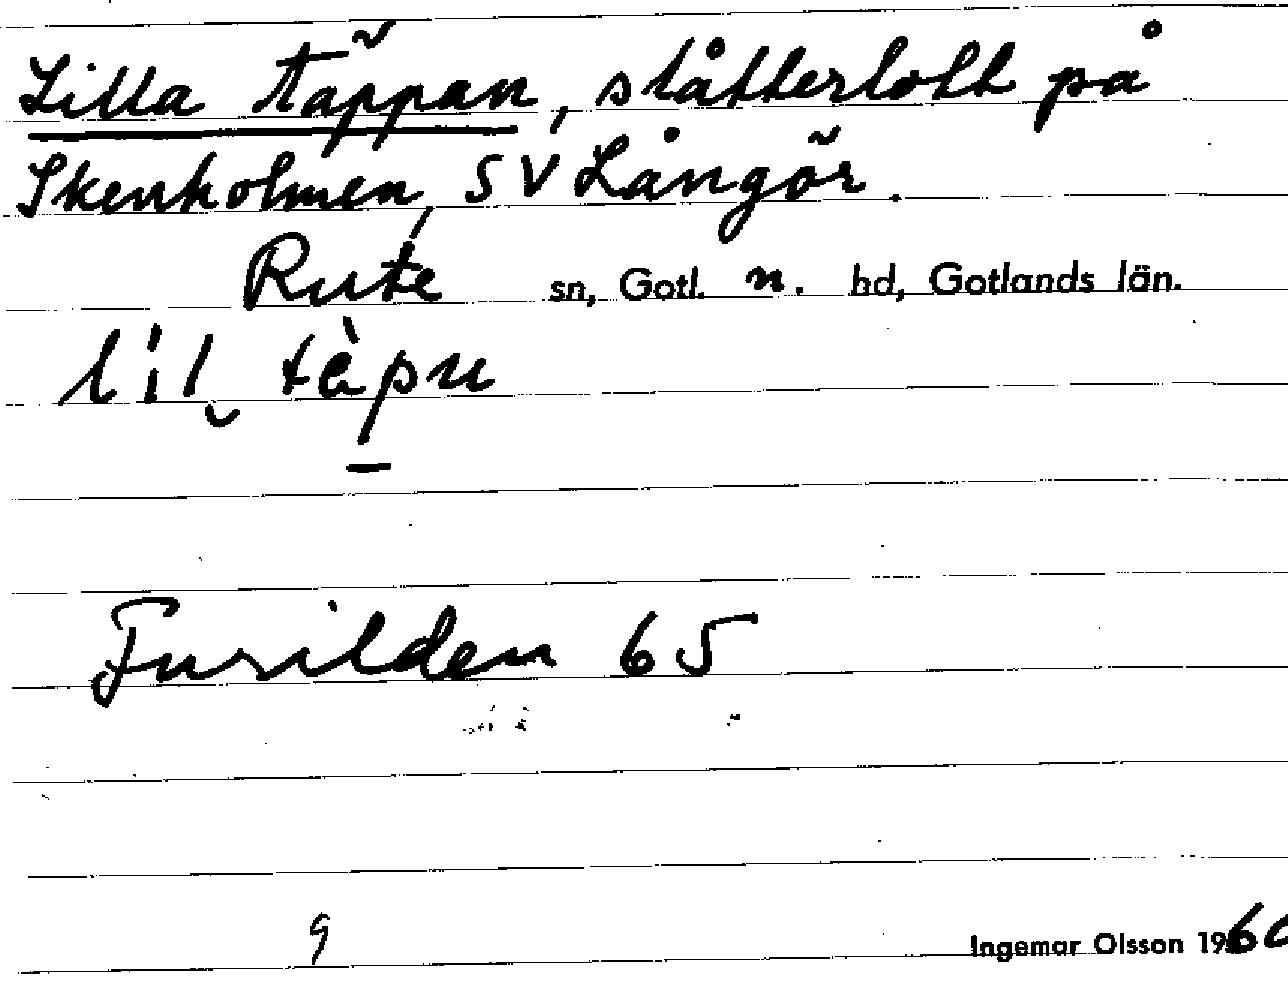 Lilla Täppan, slåtterlott på
Skenholmen, SV Långör.
Rute sn, Gotl. n. hd, Gotlands län.
lil tèpu
Furilden 65
9
Ingemar Olsson 1960